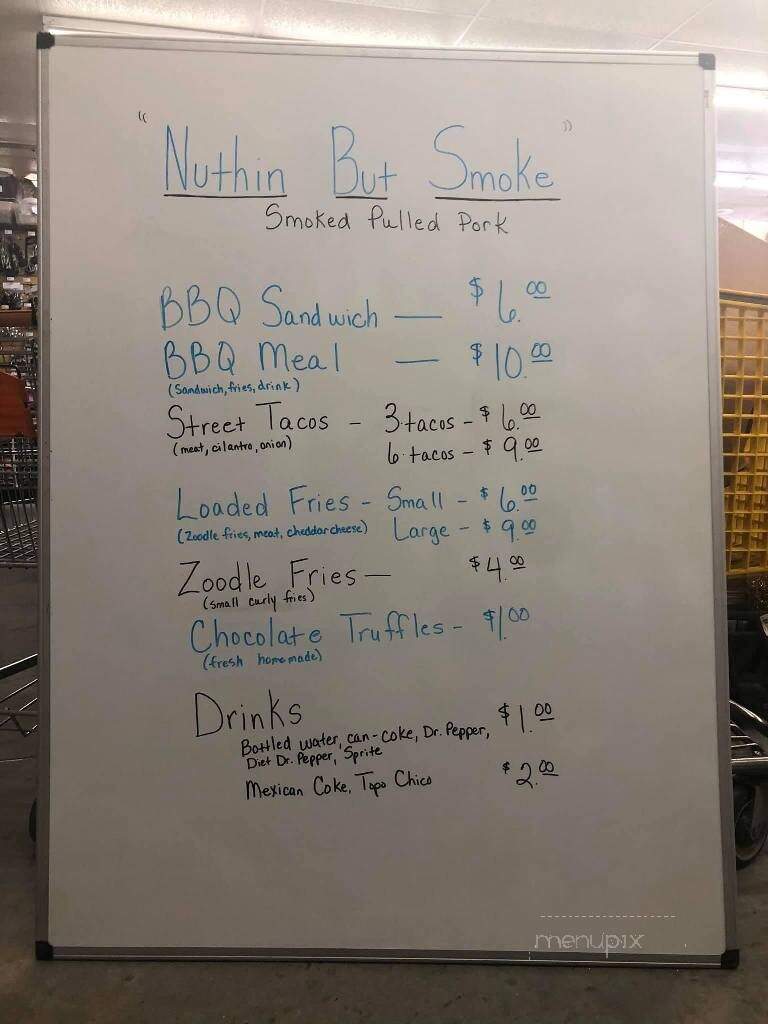 " Nuthin But Smoke "
Smoked Pulled Pork
BBQ Sandwich — $6.00
BBQ Meal — $10.00
(Sandwich, fries, drink)
Street Tacos - 3 tacos - $6.00
(meat, cilantro, onion) 6 tacos - $9.00
Loaded Fries - Small - $6.00
(Zoodle fries, meat, cheddar cheese) Large - $9.00
Zoodle Fries — $4.00
(small curly fries)
Chocolate Truffles - $1.00
(fresh homemade)
Drinks $1.00
Bottled water, can-coke, Dr. Pepper,
Diet Dr. Pepper, Sprite
Mexican Coke, Topo Chico $2.00
menupix